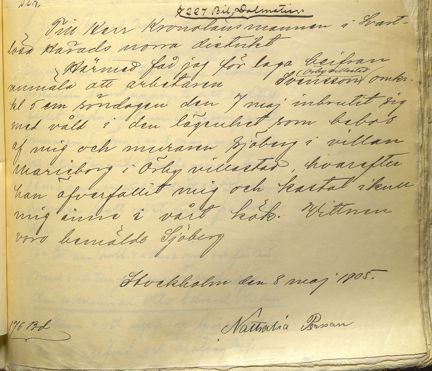 § 227 Bil.
Till Herr Kronolänsmannen i Svart-
lösa härads norra distrikt
Härmed får jag för laga beifran
Örby villastad
anmäla att arbetaren Svensson omkr.
kl 5 em söndagen den 7 maj inbrutit sig
med våld i den lägenhet som bebos
af mig och muraren Sjöberg i villan
Marieborg i Örby villastad, hvarefter
han öfverfallit mig och kastat ikull
mig inne i vårt kök. Vittnen
voro bemälde Sjöberg
Stockholm den 8 maj 1905.
Nathalia
176 Bd